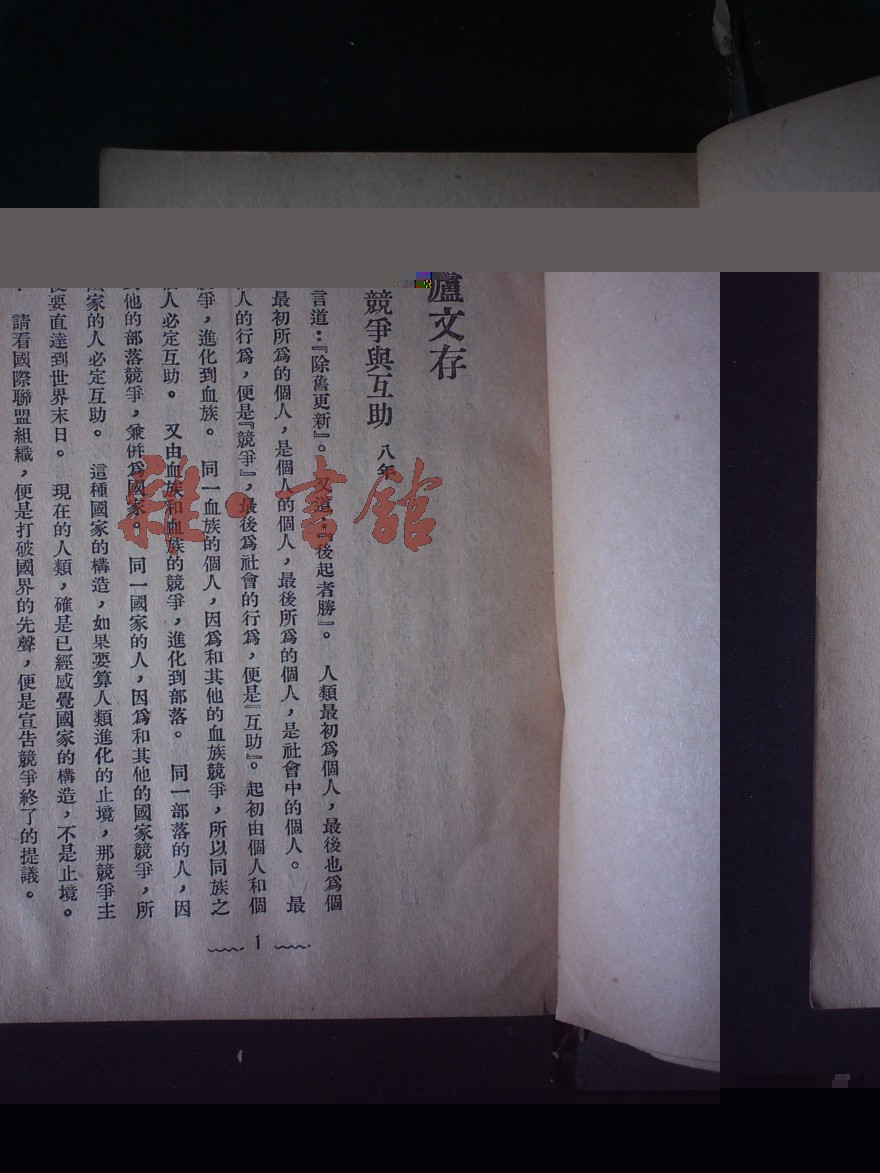 廬文存
競爭與互助 八年
言道：『除舊更新』。又道：『後起者勝』。 人類最初爲個人，最後也爲個
最初所爲的個人，是個人的個人，最後所爲的個人，是社會中的個人。 最
人的行爲，便是『競爭』，最後爲社會的行爲，便是『互助』。起初由個人和個
爭，進化到血族。 同一血族的個人，因爲和其他的血族競爭，所以同族之
人必定互助。 又由血族和血族的競爭，進化到部落。 同一部落的人，因
他的部落競爭，兼併爲國家。 同一國家的人，因爲和其他的國家競爭，所
國家的人必定互助。 這種國家的構造，如果要算人類進化的止境，那競爭主
要直達到世界末日。 現在的人類，確是已經感覺國家的構造，不是止境。
請看國際聯盟組織，便是打破國界的先聲，便是宣告競爭終了的提議。
1
雜·書館